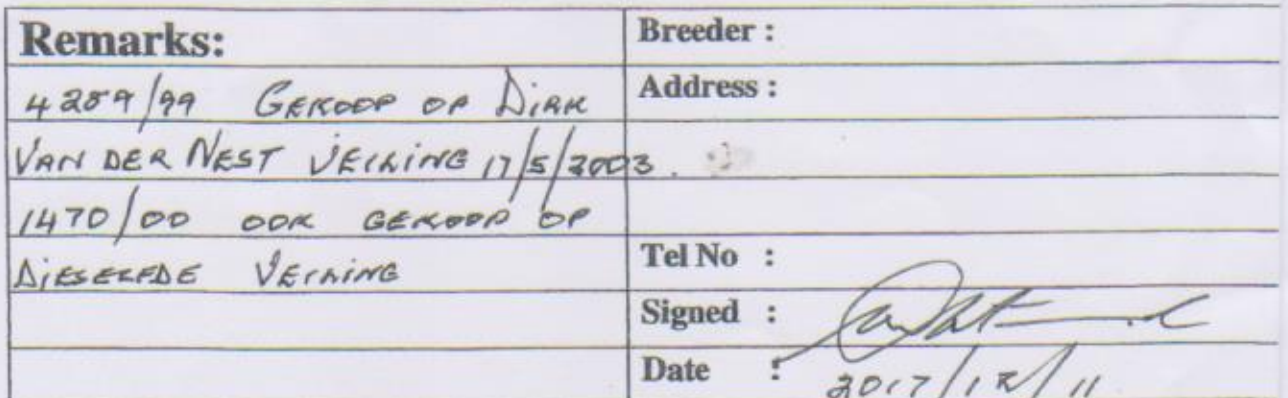 Remarks:
4289/99 GEKOOP OP DIRK
VAN DER NEST VEILING 17/5/2003.
1470/00 OOK GEKOOP OP
DIESELFDE VEILING
Breeder :
Address :
Tel No :
Signed :
Date : 2017/12/11